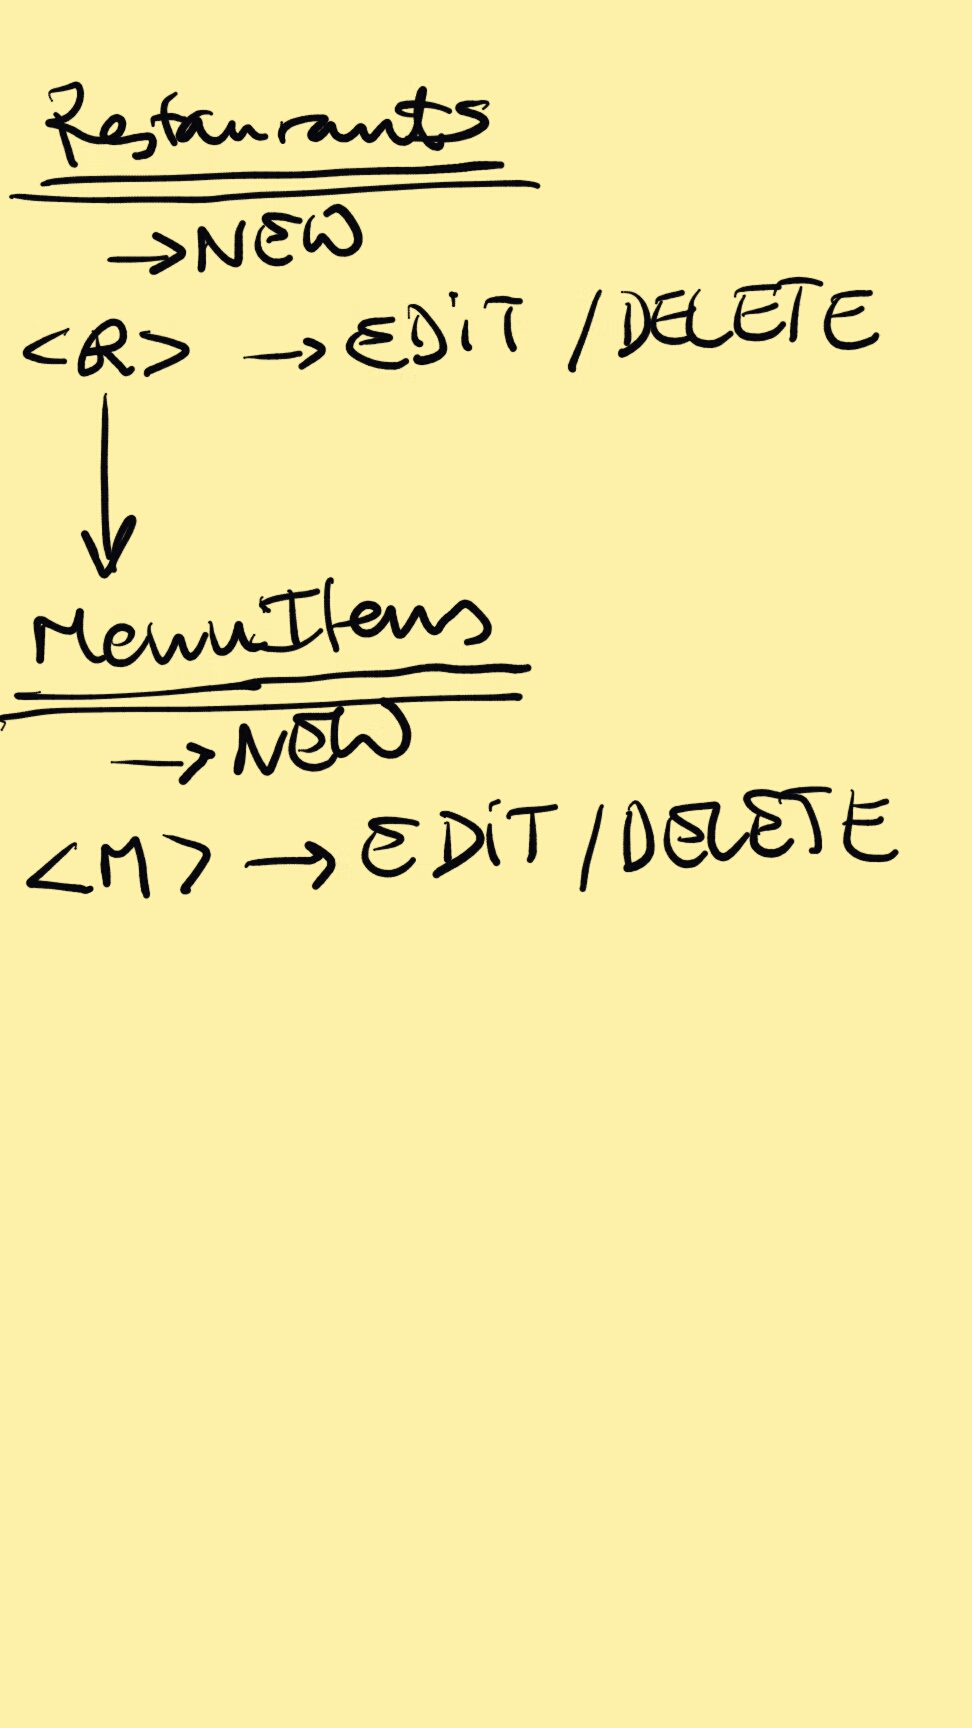 Restaurants
→ NEW
<R> → EDiT / DELETE
MenuItems
→ NEW
<M> → EDiT / DELETE